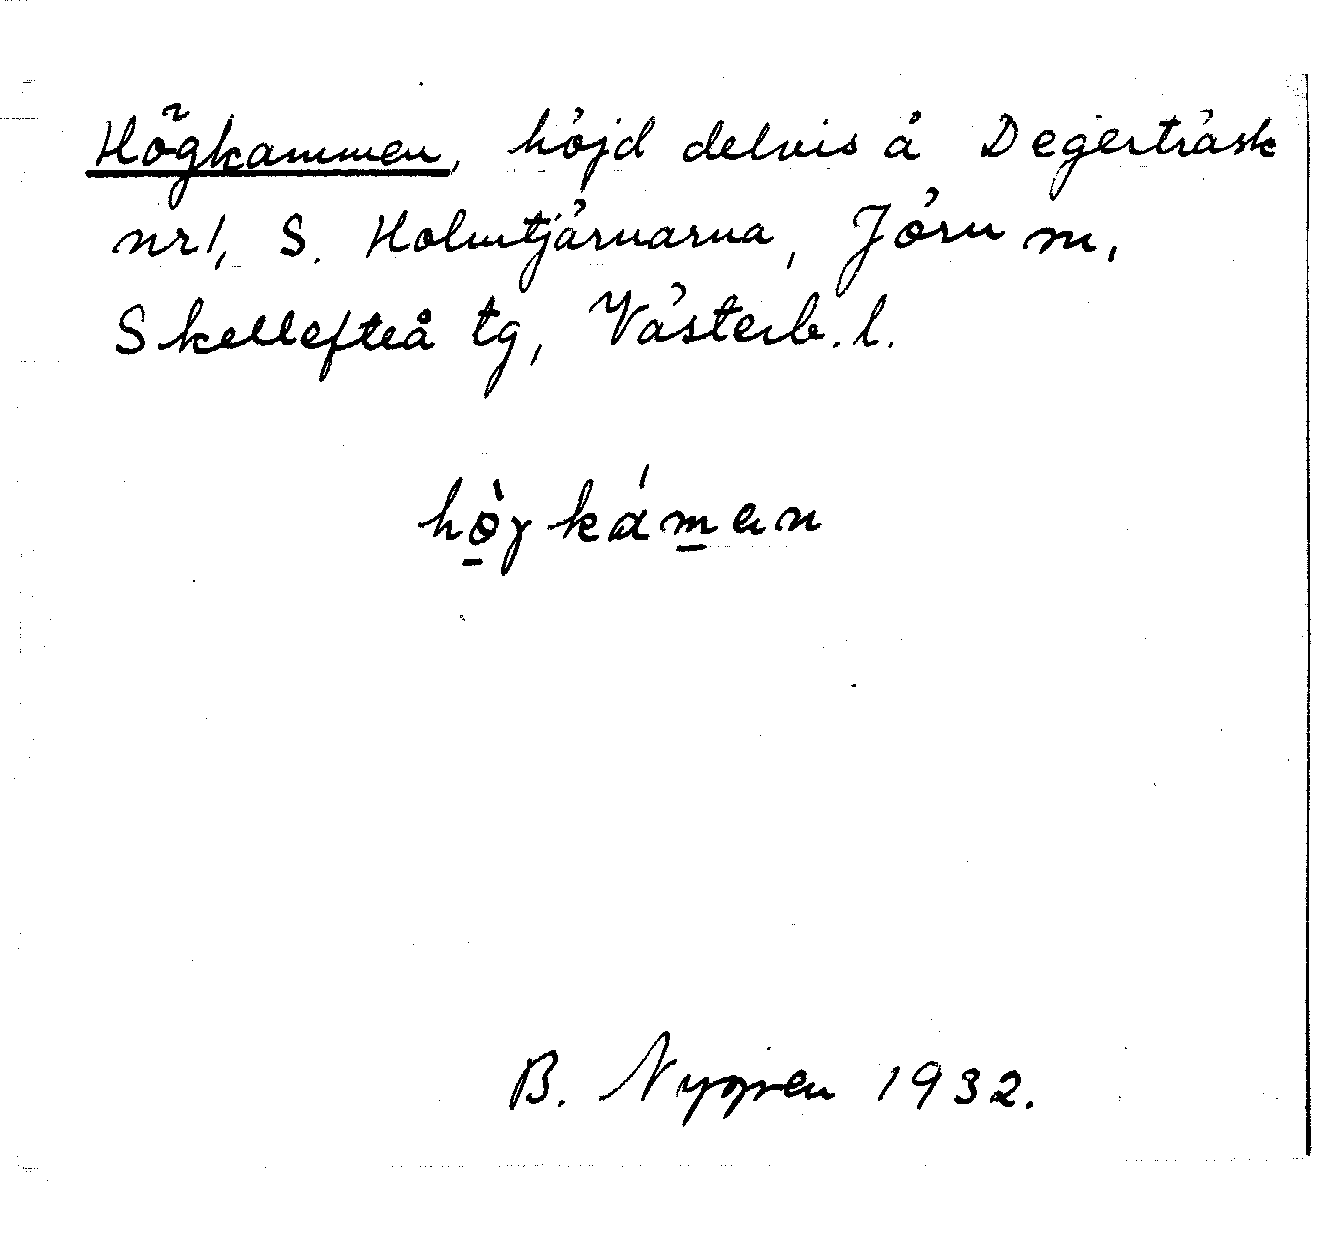 Högkammen, höjd delvis å Degerträsk
nr 1, S. Holmtjärnarna, Jörn m,
Skellefteå tg, Västerb. l.
hò̱gkáma̱n
B. Nygren 1932.